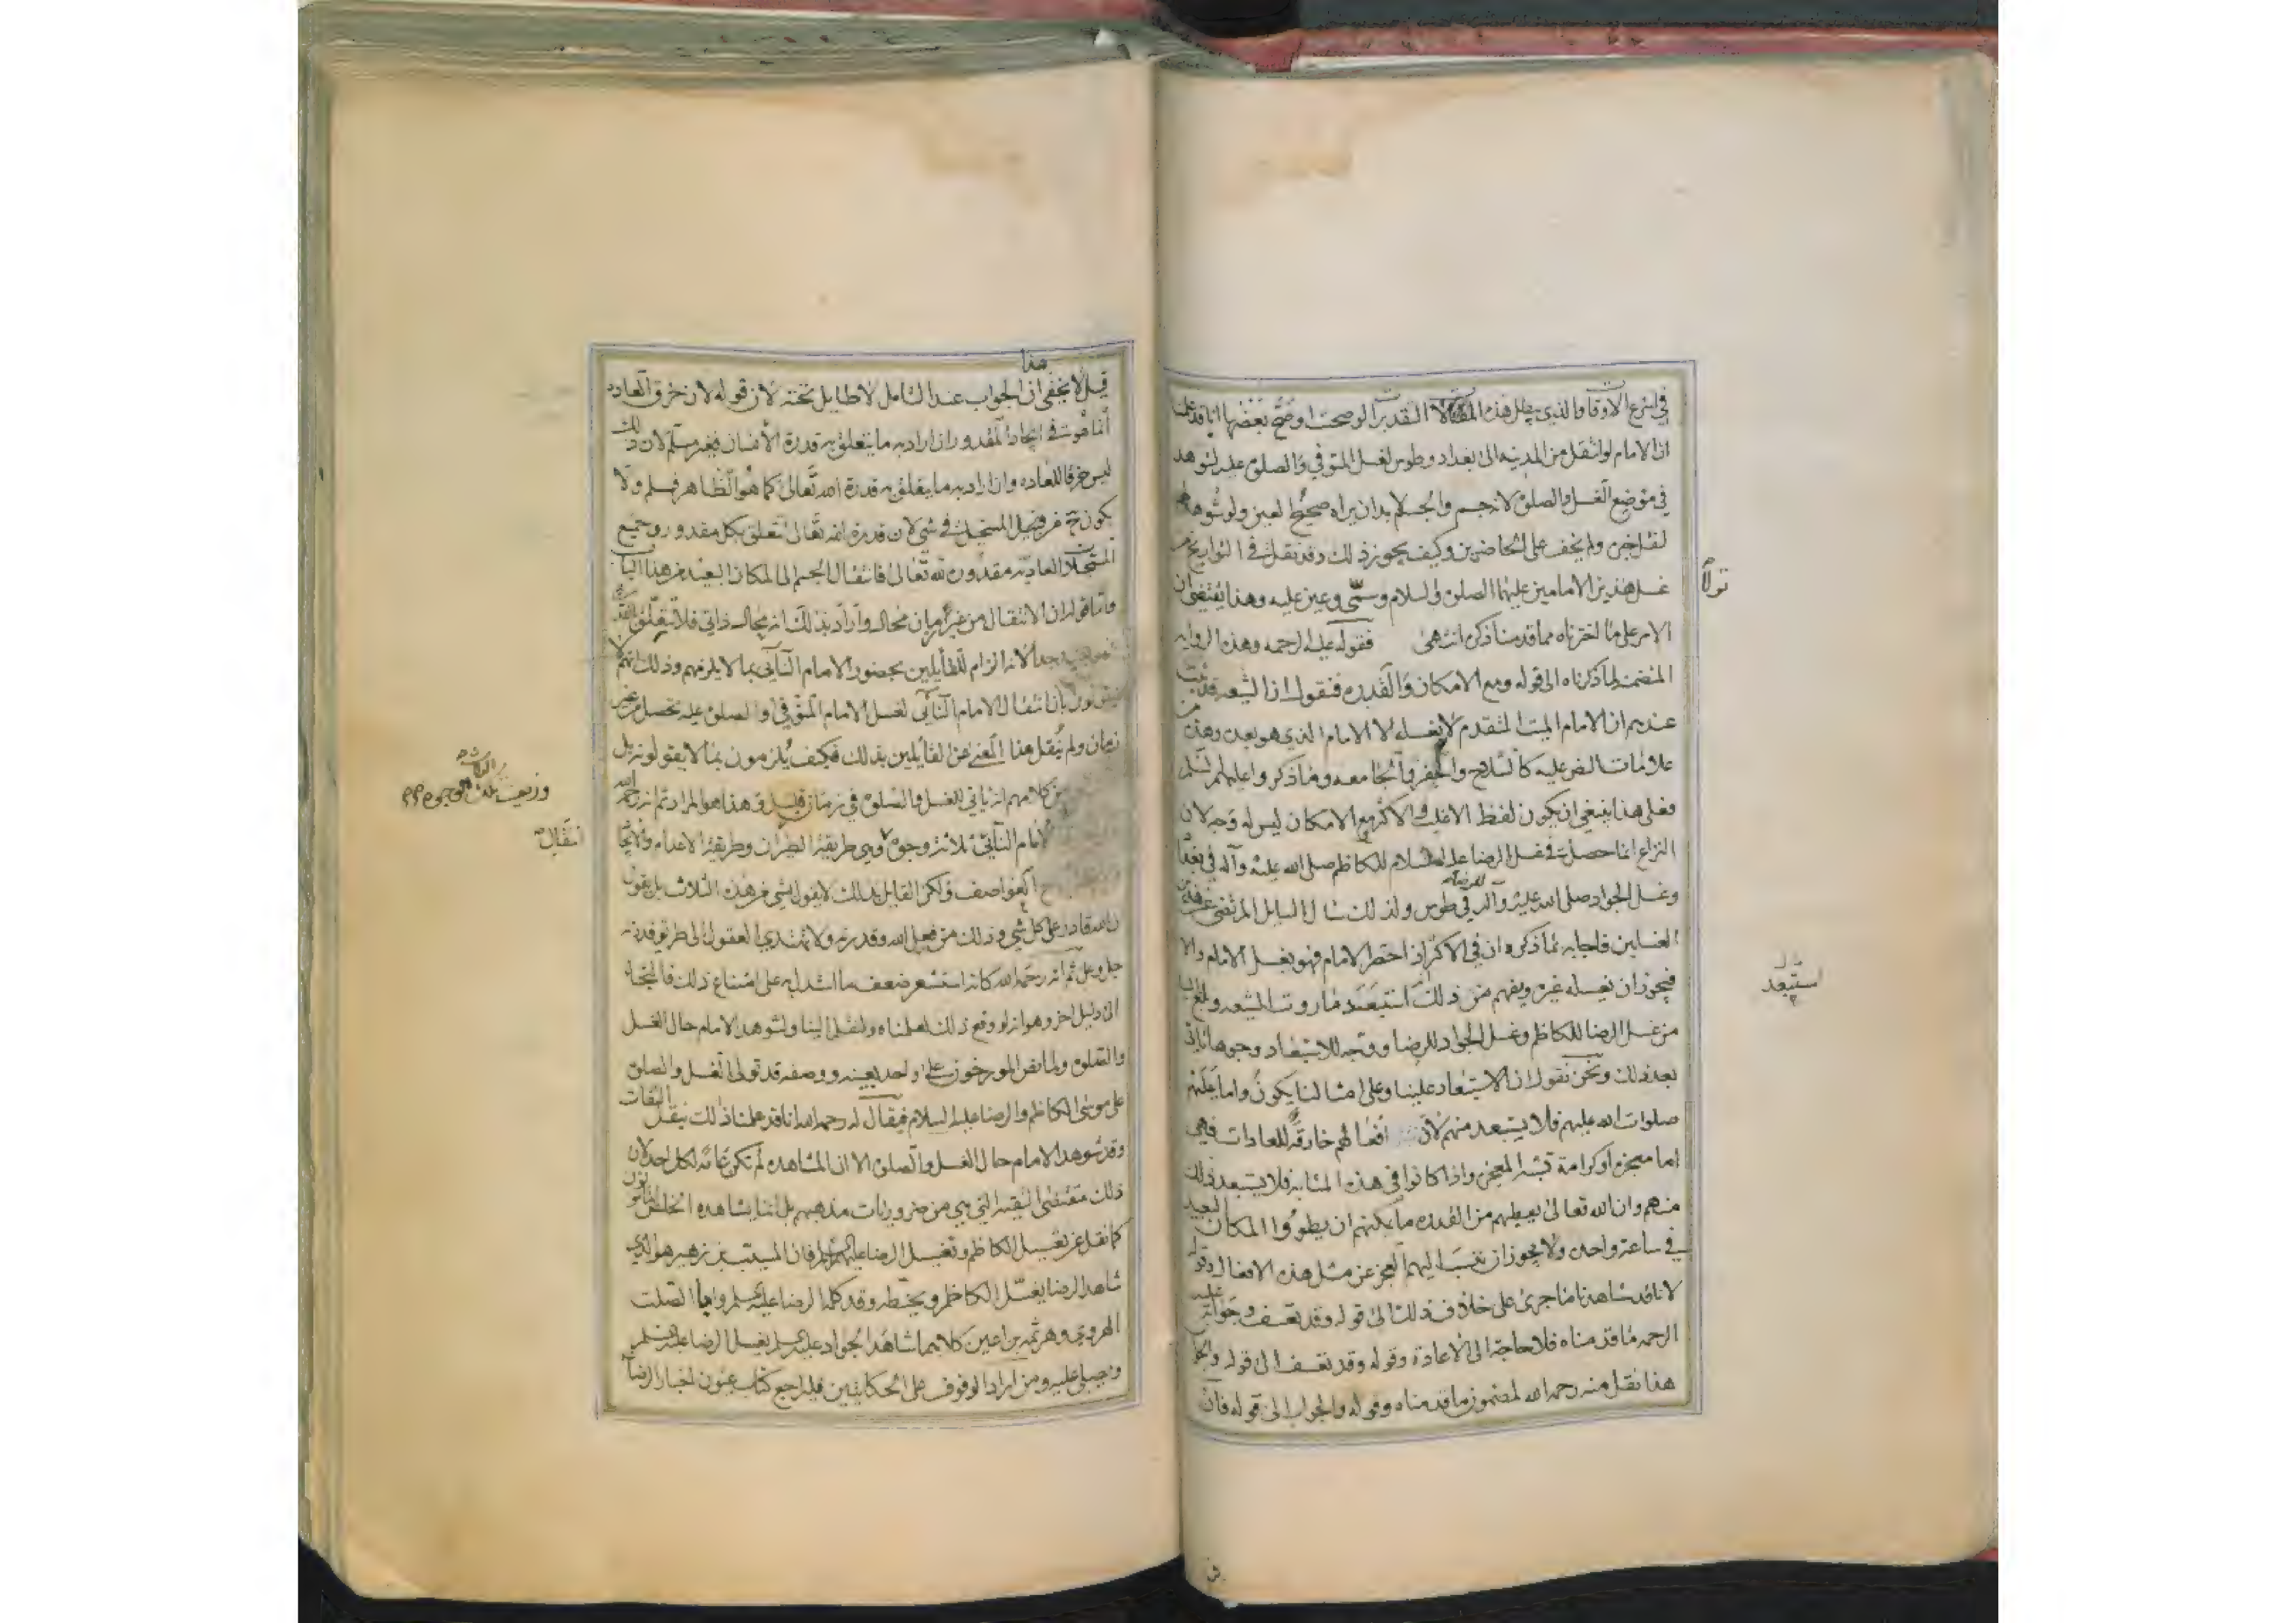 في اسرع الاوقات والذي يبطل هذه المقالات التقديرات لو صحت او صح بعضها انا قد علمنا
ان الامام لو انتقل من المدينه الى بغداد وطوس لغسل المتوفي والصلوة عليه لشوهد
في موضع الغسل والصلوة لانه جسم والجسم لا بد ان يراه صحيح العين ولو شوهد
لنقل خبره ولم يخف على الحاضرين وكيف يجوز ذلك وقد نقل في التواريخ من
تولى
غسل هذين الامامين عليهما الصلوة والسلام وسمى وعين عليه وهذا يقتضي ان
الامر على ما اخترناه مما قدمنا ذكره انتهى فقوله عليه الرحمه وهذه الروايه
المضمنة لما ذكرناه الى قوله ومع الامكان والقدره فنقول ان الشيعه قد ثبت
عندهم ان الامام الميت المتقدم لا يغسله الا الامام الذي هو بعده وهذه من
علامات النص عليه كالسلاح والجفر والجامعه وما ذكروا عليهم السلام
فعلى هذا ينبغي ان يكون لفظ الاغلب والاكثر مع الامكان ليس له وجه لان
النزاع انما حصل في غسل الرضا عليه السلام للكاظم صلى الله عليه وآله في بغداد
وغسل الجواد صلى الله عليه وآله للرضا في طوس ولذلك سال السايل المرتضى عن هذين
الغسلين فاجابه بما ذكره ان في الاكثر اذا احضر الامام فهو يغسل الامام والا
فيجوز ان يغسله غيره ويفهم من ذلك استبعد ما روت الشيعه
استبعد
من غسل الرضا للكاظم وغسل الجواد للرضا ووجه للاستبعاد وجوها تاتي
بعد ذلك ونحن نقول ان الاستبعاد علينا وعلى امثالنا يكون واما عليهم
صلوات الله عليهم فلا يستبعد منهم لان افعالهم خارقة للعادات فهي
اما معجزه او كرامة تشبه المعجزه واذا كانوا في هذه المثابه فلا يستبعد ذلك
منهم وان الله تعالى يعطيهم من القدره ما يمكنهم ان يطووا المكان البعيد
في ساعة واحده ولا يجوز ان ننسب اليهم العجز عن مثل هذه الافعال وقوله
لانا قد شاهدنا ما جرى على خلاف ذلك الى قوله وقد تعسف وجوابه عليه
الرحمه ما قدمناه فلا حاجة الى الاعادة وقوله وقد تعسف الى قوله والجواب
هذا نقل منه رحمه الله لمضمون ما قدمناه وقوله والجواب الى قوله فان
قيل لا يخفى ان هذا الجواب عند التامل لا طايل تحته لان قوله لان خرق العاده
انما هو في ايجاد المقدور ان اراد به ما يتعلق به قدرة الانسان فغير مسلم لان ذلك
ليس خرقا للعاده وان اراد به ما يتعلق به قدرة الله تعالى كما هو الظاهر فمسلم ولا
يكون ثمة من قبيل المستحيل في شي لان قدرة الله تعالى تتعلق بكل مقدور وجميع
المستحيلات العاديه مقدورة لله تعالى فانتقال الجسم الى المكان البعيد من هذا الباب
واما قوله ان الانتقال من غير زمان محال واراد بذلك انه محال ذاتي فلا تتعلق به القدرة
جدا لانه الزام للقايلين بحضور الامام النائي بما لا يلزمهم وذلك انهم لا
يقولون بان انتقال الامام النائي لغسل الامام المتوفي والصلوة عليه تحصل من غير
زمان ولم ينقل هذا المعنى عن القايلين بذلك فكيف يلزمون بما لا يقولونه بل
من كلامهم انه ياتي للغسل والصلوة في زمان قليل وهذا هو المراد ثم انه رحمه الله
انتقال
الامام النائي ثلاثة وجوه وهي طريقة الطيران وطريقة الاعدام والايجاد
العواصف ولكن القايل بذلك لا يقول بشي من هذه الثلاث بل يقول
ان الله قادر على كل شي وذلك من فعل الله وقدرته ولا تهتدي العقول الى طرق قدرته
جل وعلا ثم انه رحمه الله كانه استشعر ضعف ما استدل به على امتناع ذلك فالتجا
الى دليل اخر وهو انه لو وقع ذلك لعلمناه ولنقل الينا ولشوهد الامام حال الغسل
والصلوة ولما نص المورخون على واحد بعينه ووصفه قد تولى الغسل والصلوة
على موسى الكاظم والرضا عليهما السلام فيقال له رحمه الله انا قد علمنا ذلك بنقل الثقات
وقد شوهد الامام حال الغسل والصلوة الا ان المشاهده لم تكن عامة لكل احد لان
ذلك مقتضى التقيه التي هي من ضروريات مذهبهم بل انما يشاهده الخلص
كما نقل عن تغسيل الكاظم وتغسيل الرضا عليهم السلام فان المسيب بن زهير هو الذي
شاهد الرضا يغسل الكاظم ويحنطه وقد كلمه الرضا عليه السلم وابا الصلت
الهروي وهرثمه بن اعين كلاهما شاهدا الجواد عليه السلم يغسل الرضا عليه السلم
ويصلي عليه ومن اراد الوقوف على الحكايتين فليراجع كتاب عيون اخبار الرضا